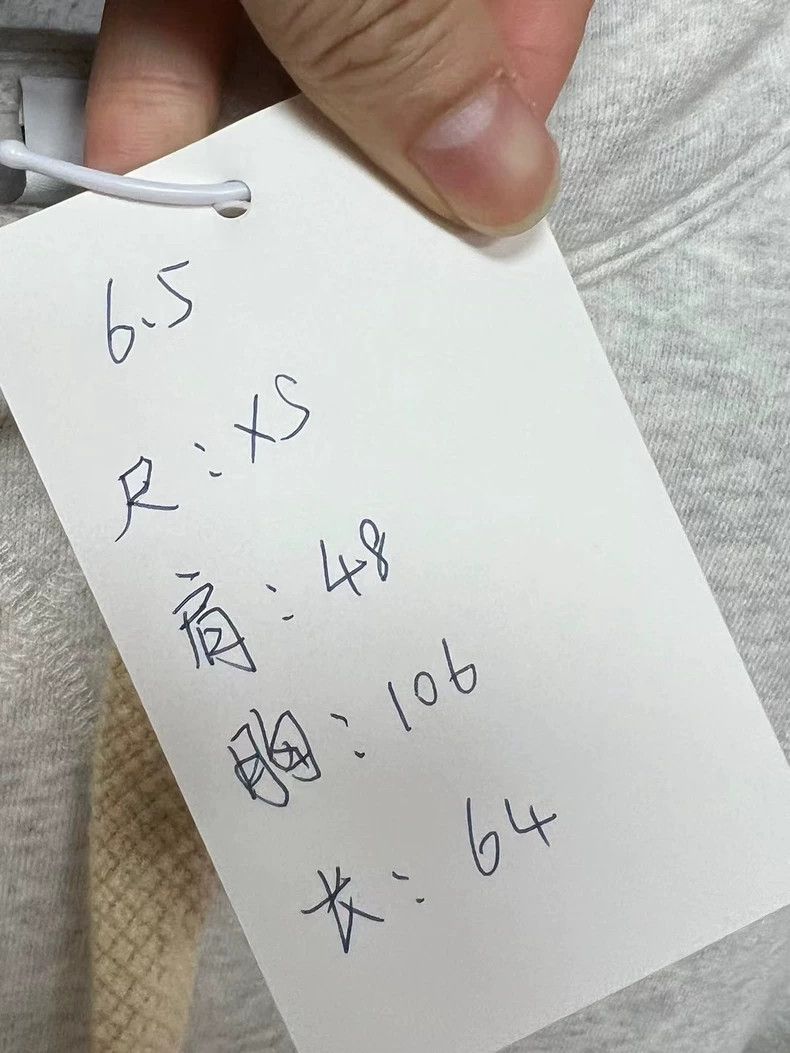 6.5
尺：XS
肩：48
胸：106
长：64